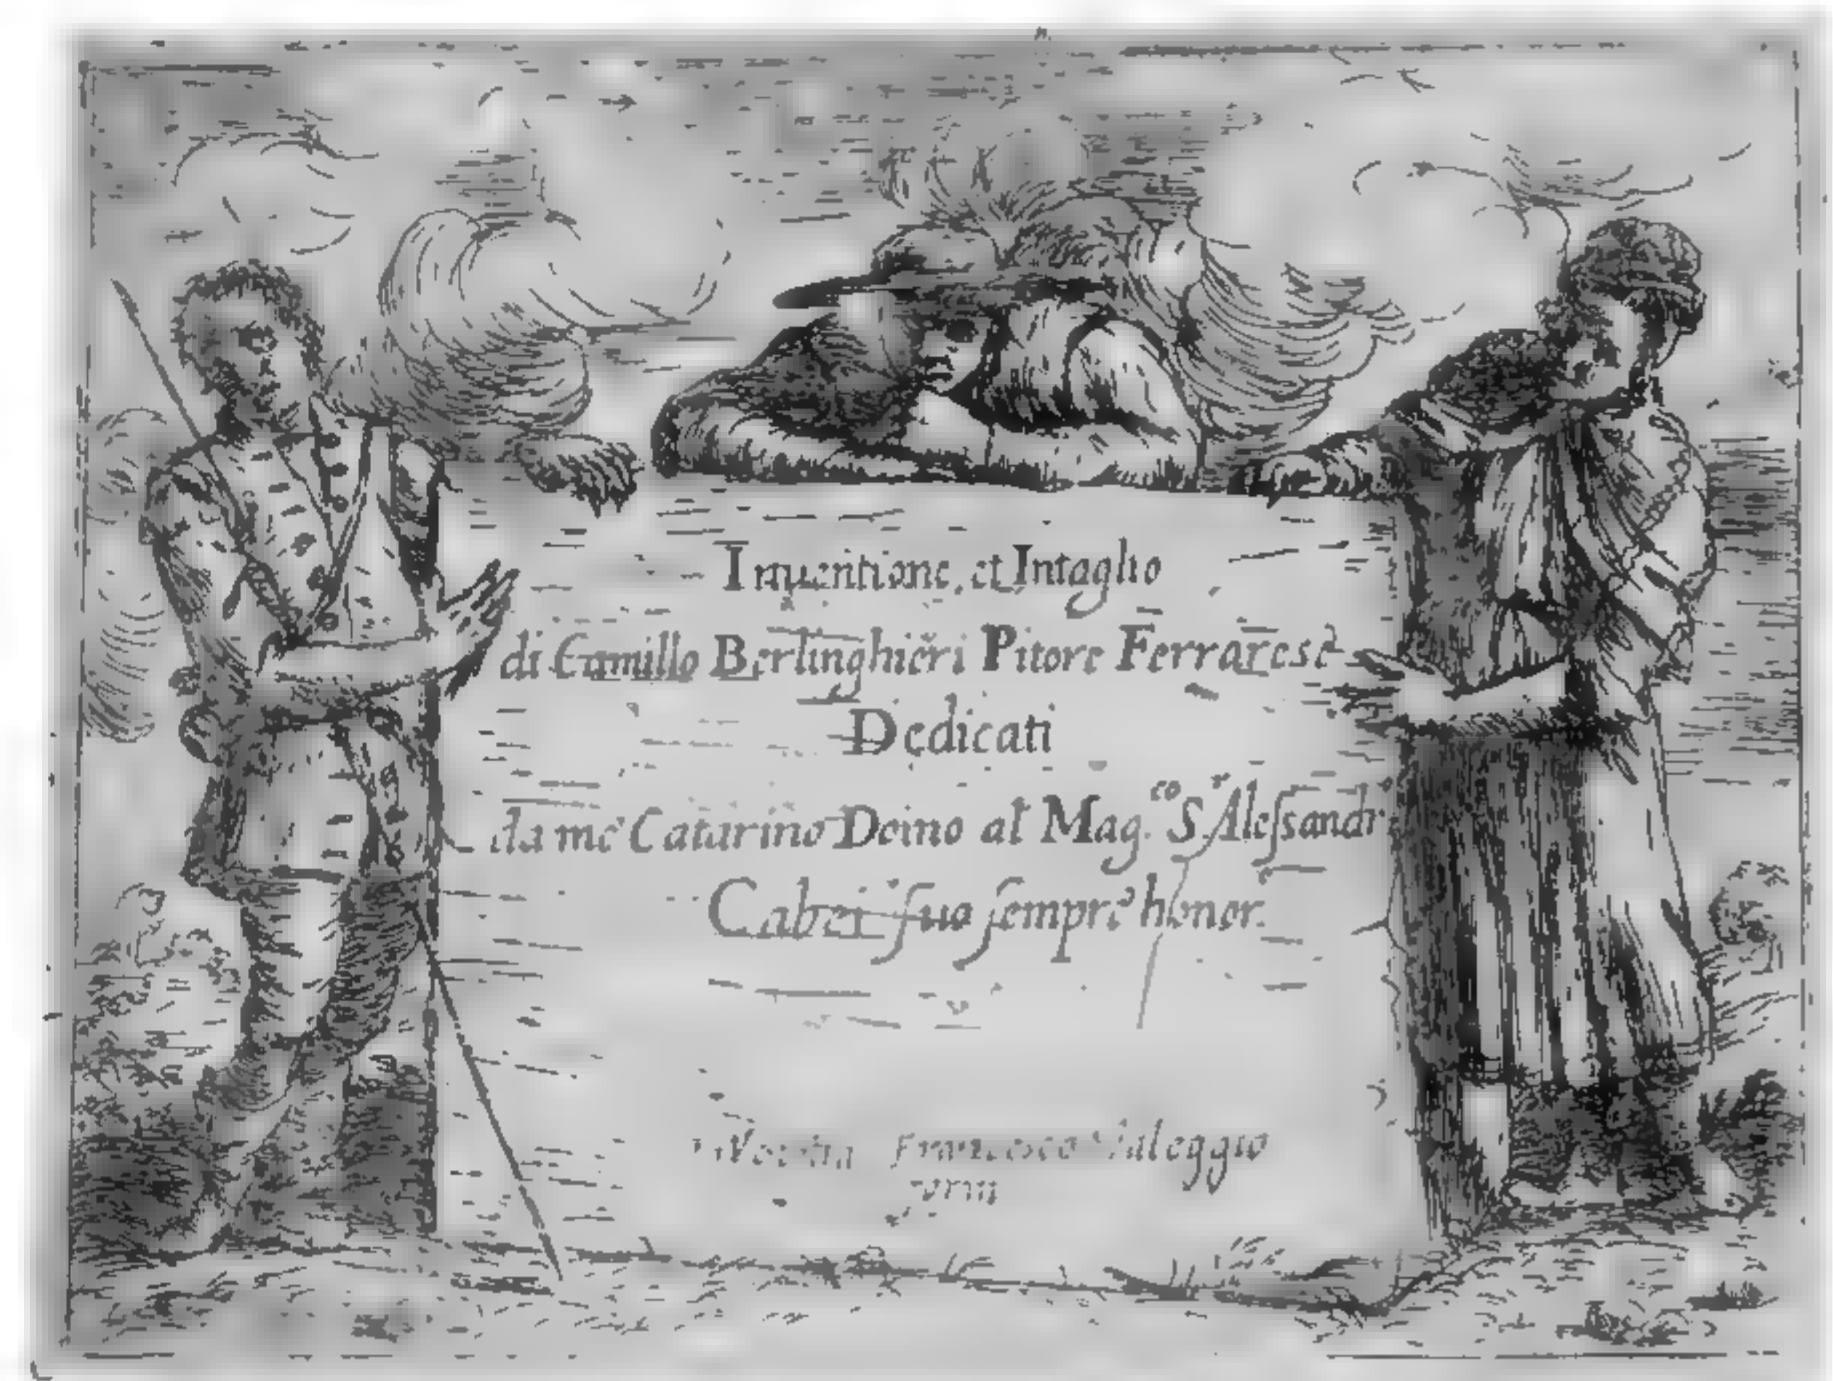 Inuentione, et Intaglio
di Camillo Berlinghieri Pitore Ferrarese
Dedicati
da me Catarino Doino al Mag.co S.r Alessandr
Cabei suo sempre honor.
Francesco Valeggio